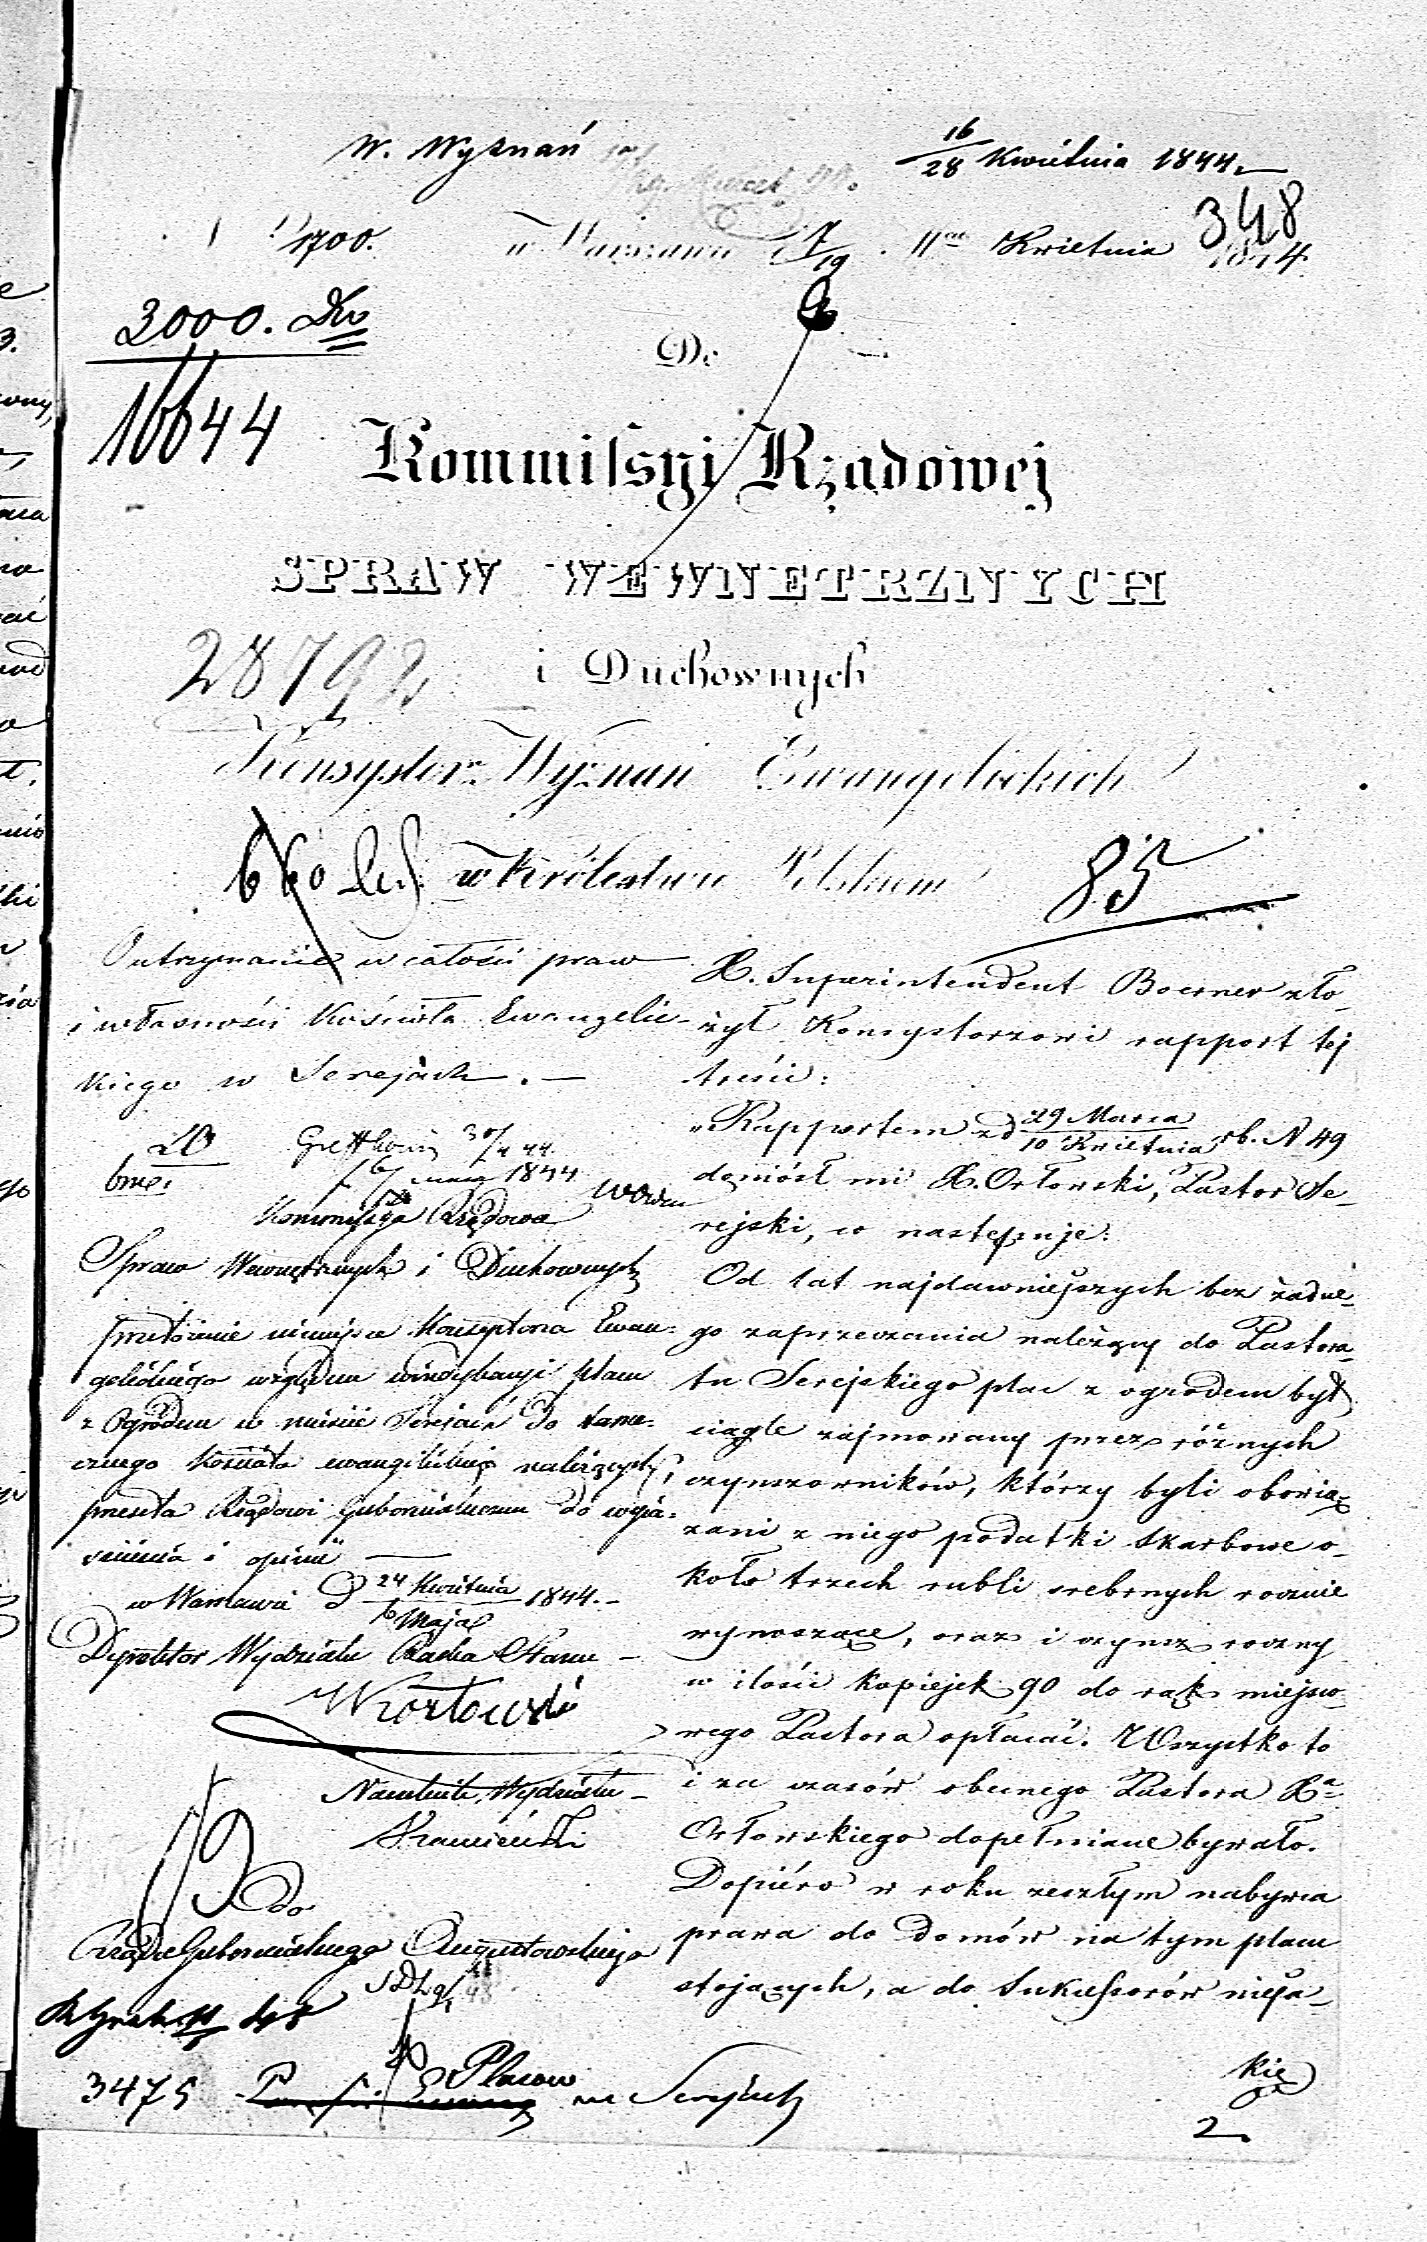 W. Wyznań
16/28 Kwietnia 1844
348
1700.
w Warszawie d. 7/19 Kwietnia 1844.
3000.
16644
Do
Kommissyi Rządowej
SPRAW WEWNĘTRZNYCH
28792
i Duchownych
Konsystorz Wyznań Ewangelickich
660
w Królestwie Polskiem
85
O utrzymanie w całości praw
i własności Kościoła Ewangelic-
kiego w Serejach. —
20
30/4 44
6 maja 1844
Kommissya Rządowa
Spraw Wewnętrznych i Duchownych
przedstawienie niniejsze Konsystorza Ewan-
gelickiego względem windykacyi placu
z Ogrodem w mieście Serejach do tame-
cznego Kościoła ewangelickiego należących,
przesyła Rządowi Gubernialnemu do wyja-
śnienia i opinii —
w Warszawie d 24 Kwietnia/6 Maja 1844. —
Dyrektor Wydziału Radca Stanu —
Kozłowski
Naczelnik Wydziału —
do
Rządu Gubernialnego Augustowskiego
48
3475
Placow w Serejach
X. Superintendent Boerner zło-
żył Konsystorzowi rapport tej
treści:
„Rapportem z d 29 Marca/10 Kwietnia rb. N 49
doniósł mi X. Orłowski, Pastor Se-
rejski, co następuje:
Od lat najdawniejszych bez żadne-
go zaprzeczenia należący do Pastora-
tu Serejskiego plac z ogrodem był
ciągle zajmowany przez różnych
czynszowników, którzy byli obowią-
zani z niego podatki skarbowe o-
koło trzech rubli srebrnych rocznie
wynoszące, oraz i czynsz roczny
w ilości kopiejek 90 do rąk miejsco-
wego Pastora opłacać. Wszystko to
i za czasów obecnego Pastora Xa
Orłowskiego dopełniane bywało.
Dopiéro w roku zeszłym nabywca
prawa do domów na tym placu
stojących, a do Sukcessorów nieja-
kie
2